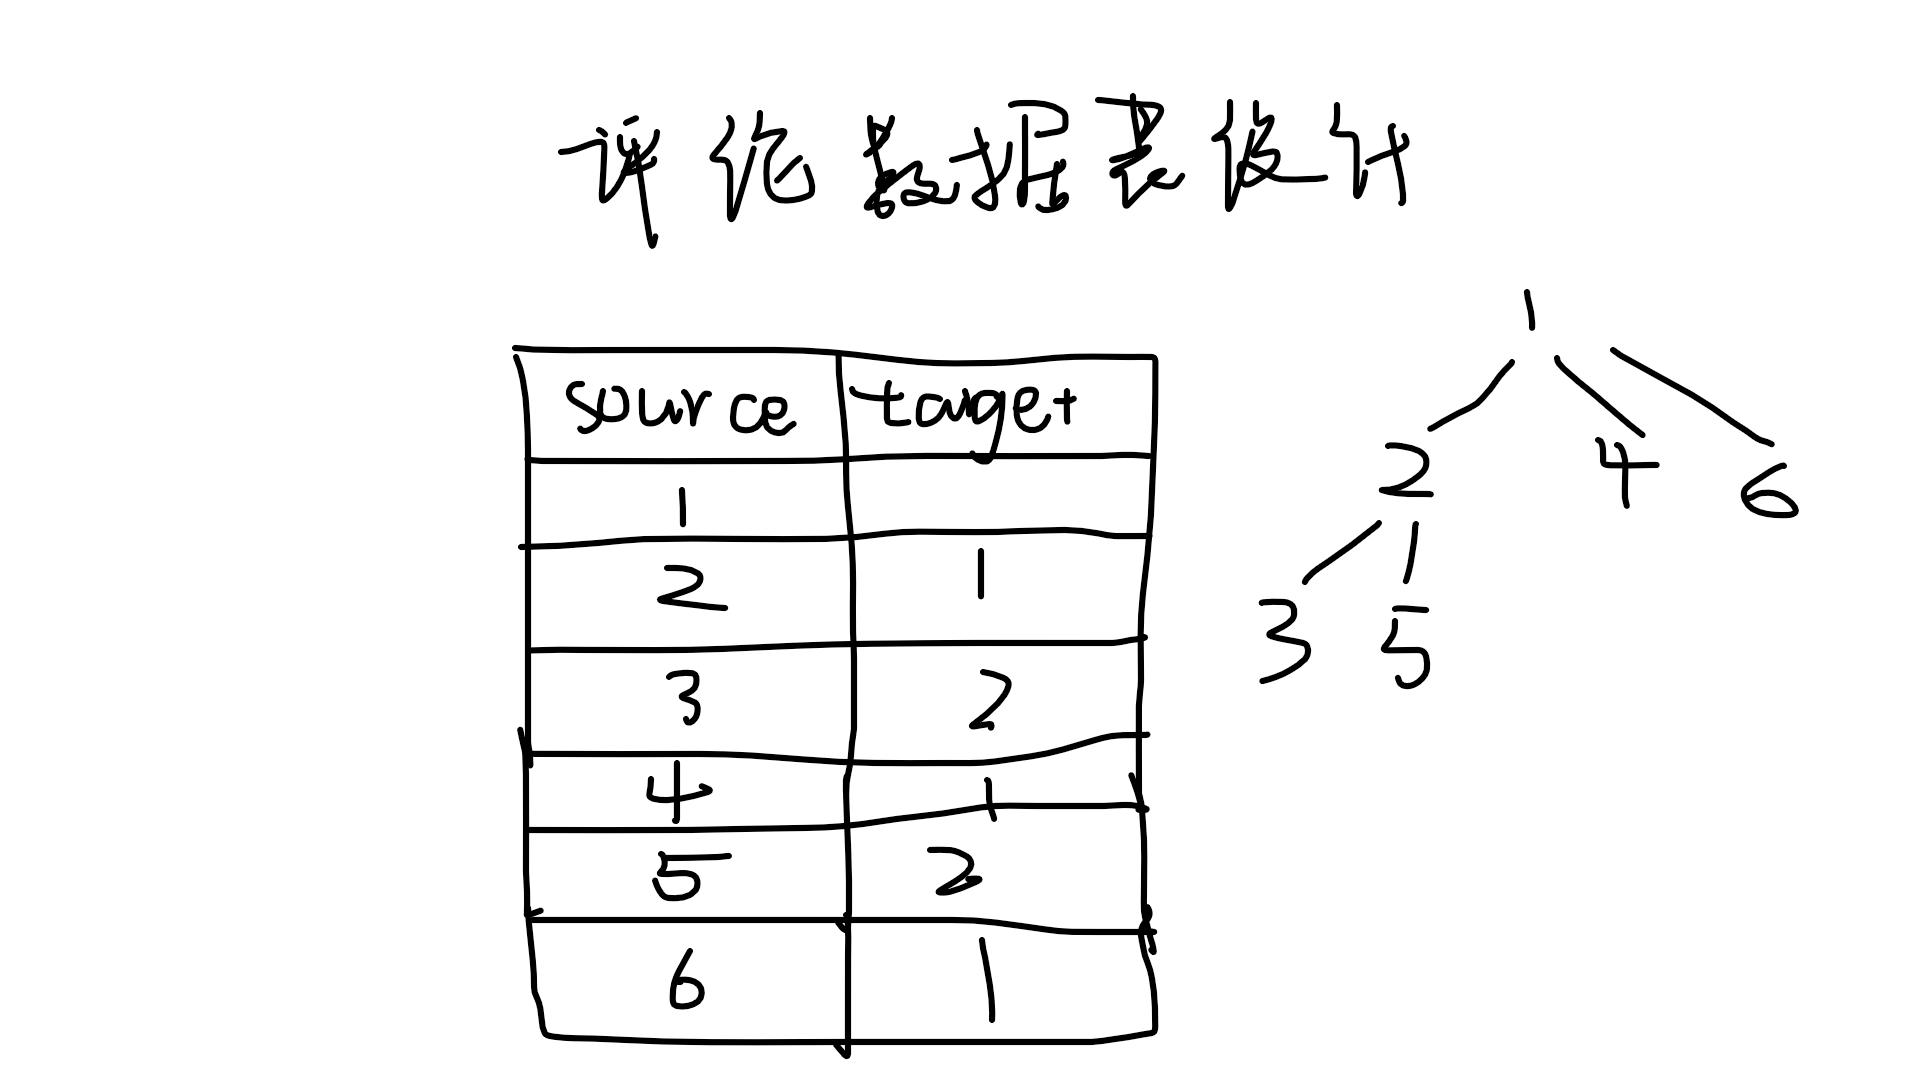 评论数据表设计
source target
1
2 1
3 2
4 1
5 2
6 1
1
2 4 6
3 5